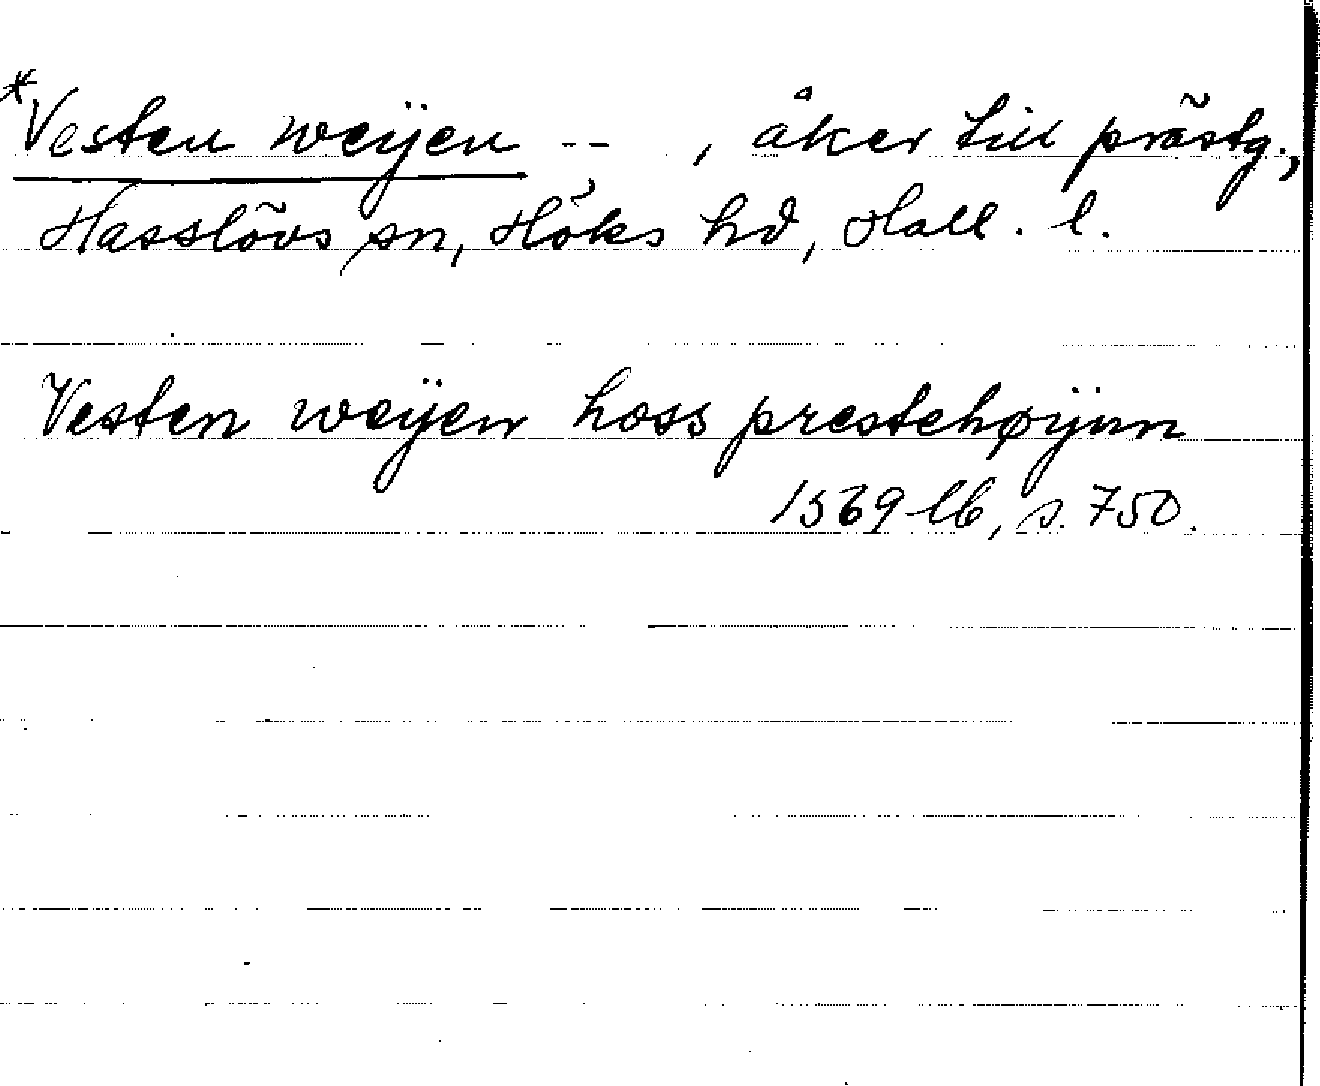 *Vesten weÿen -- , åker till prästg.,
Hasslövs sn, Höks hd, Hall. l.
Vesten weÿen hoss prestehøÿnn
1569 lb, s. 750.